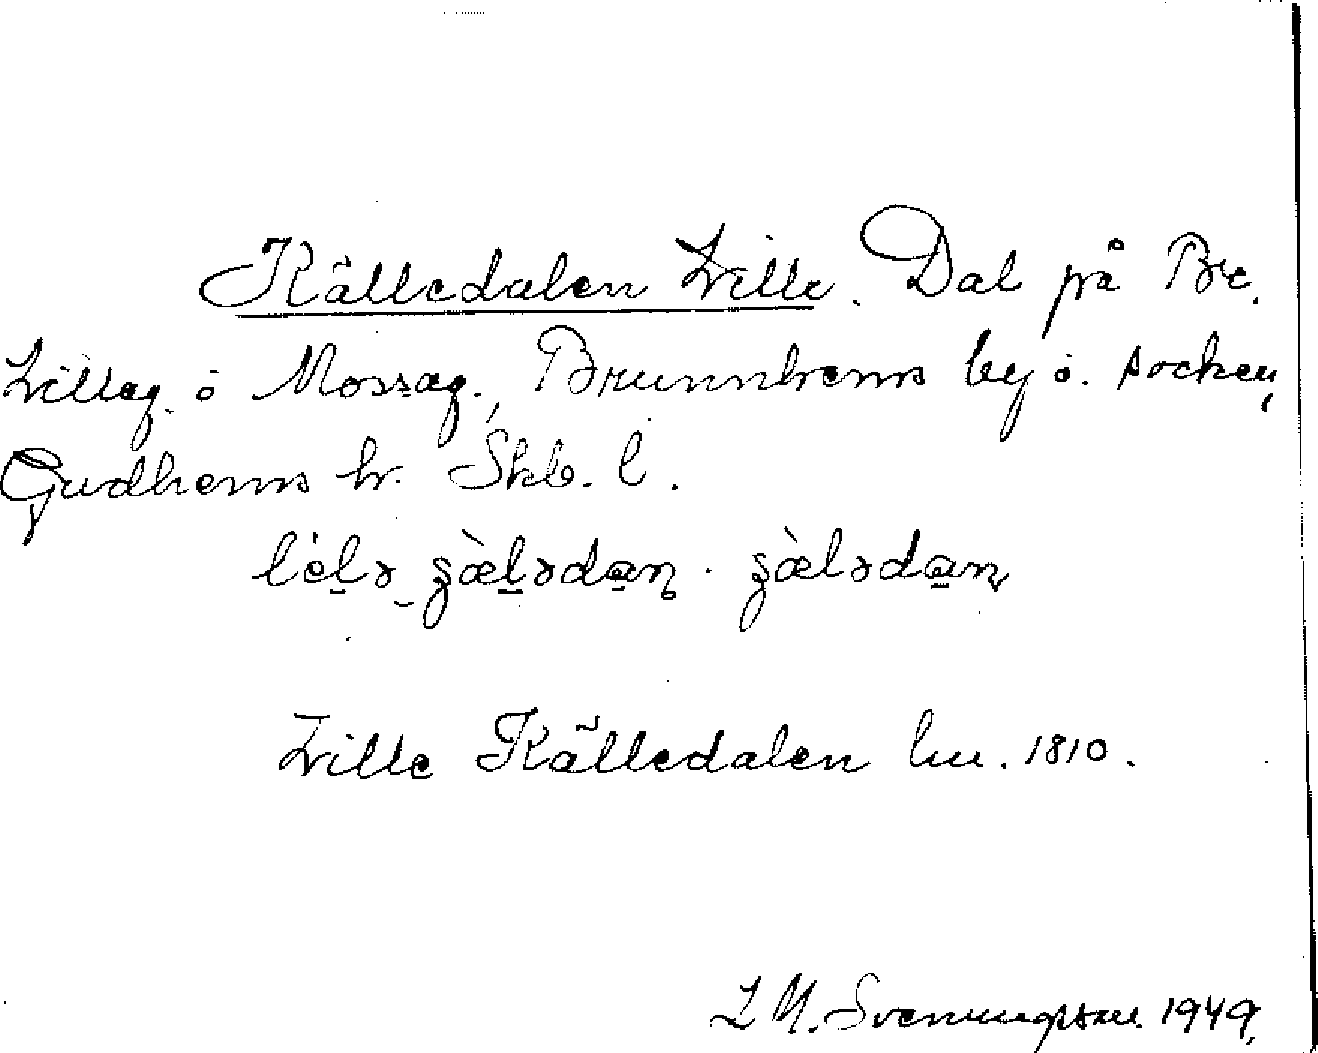 Källedalen Lille. Dal på Bre.
Lilleg. o Mossag., Brunnhems by o. socken,
Gudhems hr. Skb. l.
lèlə zæ̀lədan · zæ̀lədan
Lille Källedalen lm. 1810.
L M. Svenungsson 1949.